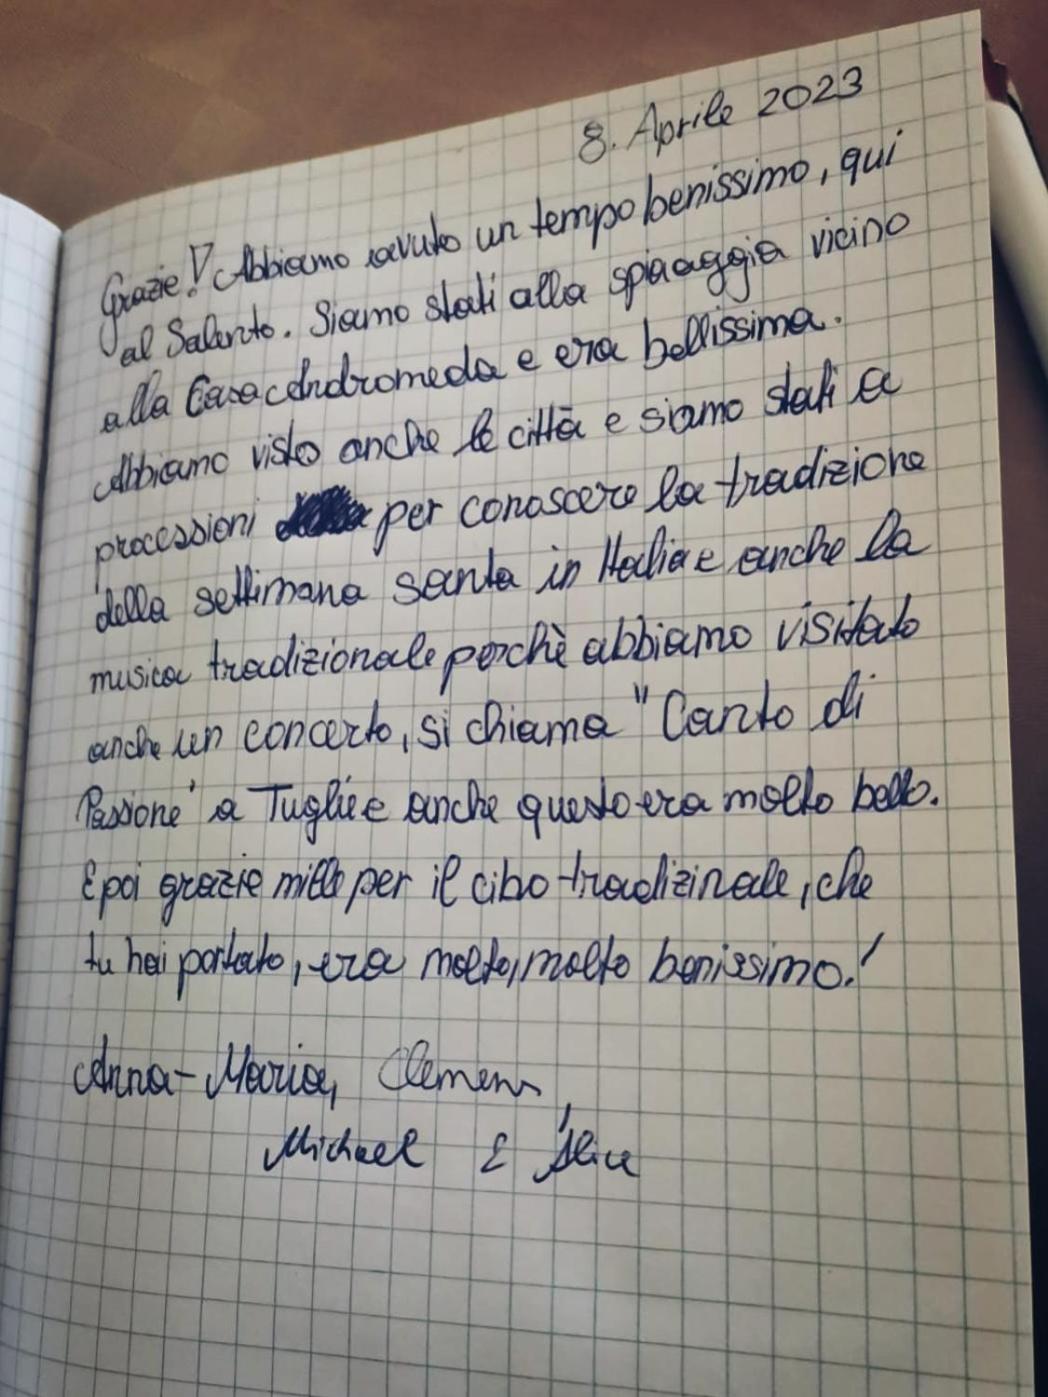 8. Aprile 2023
Grazie! Abbiamo avuto un tempo benissimo, qui
al Salento. Siamo stati alla spiaaggia vicino
alla Casa Andromeda e era bellissima.
Abbiamo visto anche le città e siamo stati a
processioni per conoscere la tradizione
della settimana santa in Italia e anche la
musica tradizionale perchè abbiamo visitato
anche un concerto, si chiama "Canto di
Passione" a Tuglie e anche questo era molto bello.
E poi grazie mille per il cibo tradizinale, che
tu hai portato, era molto, molto benissimo!
Anna-Maria, Clemens,
Michael & Alice